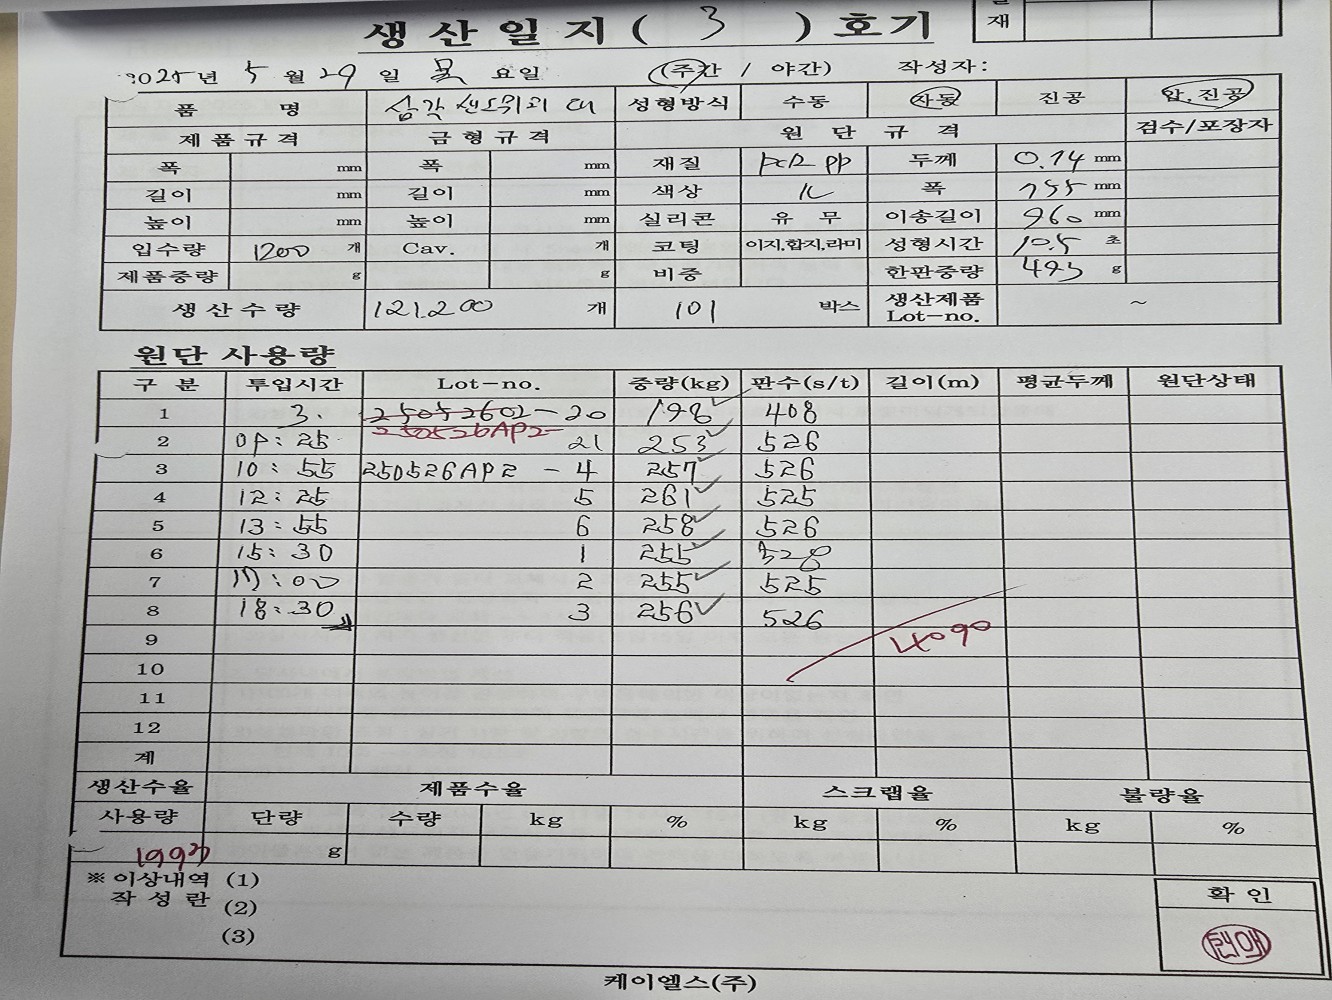 생산일지( 3 )호기
재
2025년 5월 29일 목요일 (주간 / 야간) 작성자:
품 명 삼각샌드위치 대 성형방식 수동 자동 진공 압,진공
제품규격 금형규격 원단규격 검수/포장자
폭 mm 폭 mm 재질 PCR PP 두께 0.74 mm
길이 mm 길이 mm 색상 K 폭 755 mm
높이 mm 높이 mm 실리콘 유 무 이송길이 960 mm
입수량 1200 개 Cav. 개 코팅 이지,합지,라미 성형시간 10.5 초
제품중량 g g 비중 한판중량 493 g
생산수량 121,200 개 101 박스 생산제품 Lot-no. ~
원단 사용량
구 분 투입시간 Lot-no. 중량(kg) 판수(s/t) 길이(m) 평균두께 원단상태
1 3. 25052602-20 198 408
250526AP2-
2 09:25 21 253 526
3 10:55 250526AP2 - 4 257 526
4 12:25 5 261 525
5 13:55 6 258 526
6 15:30 1 255 528
7 17:00 2 255 525
8 18:30 3 256 526
9 4090
10
11
12
계
생산수율 제품수율 스크랩율 불량율
사용량 단량 수량 kg % kg % kg %
1993 g
※이상내역 (1) 확인
작성란 (2)
(3)
케이엘스(주)